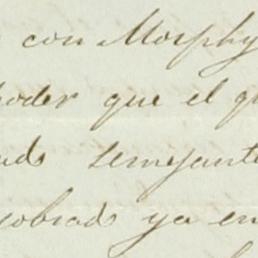 con Morphy
poder que el q
semejante
cobrado ya en